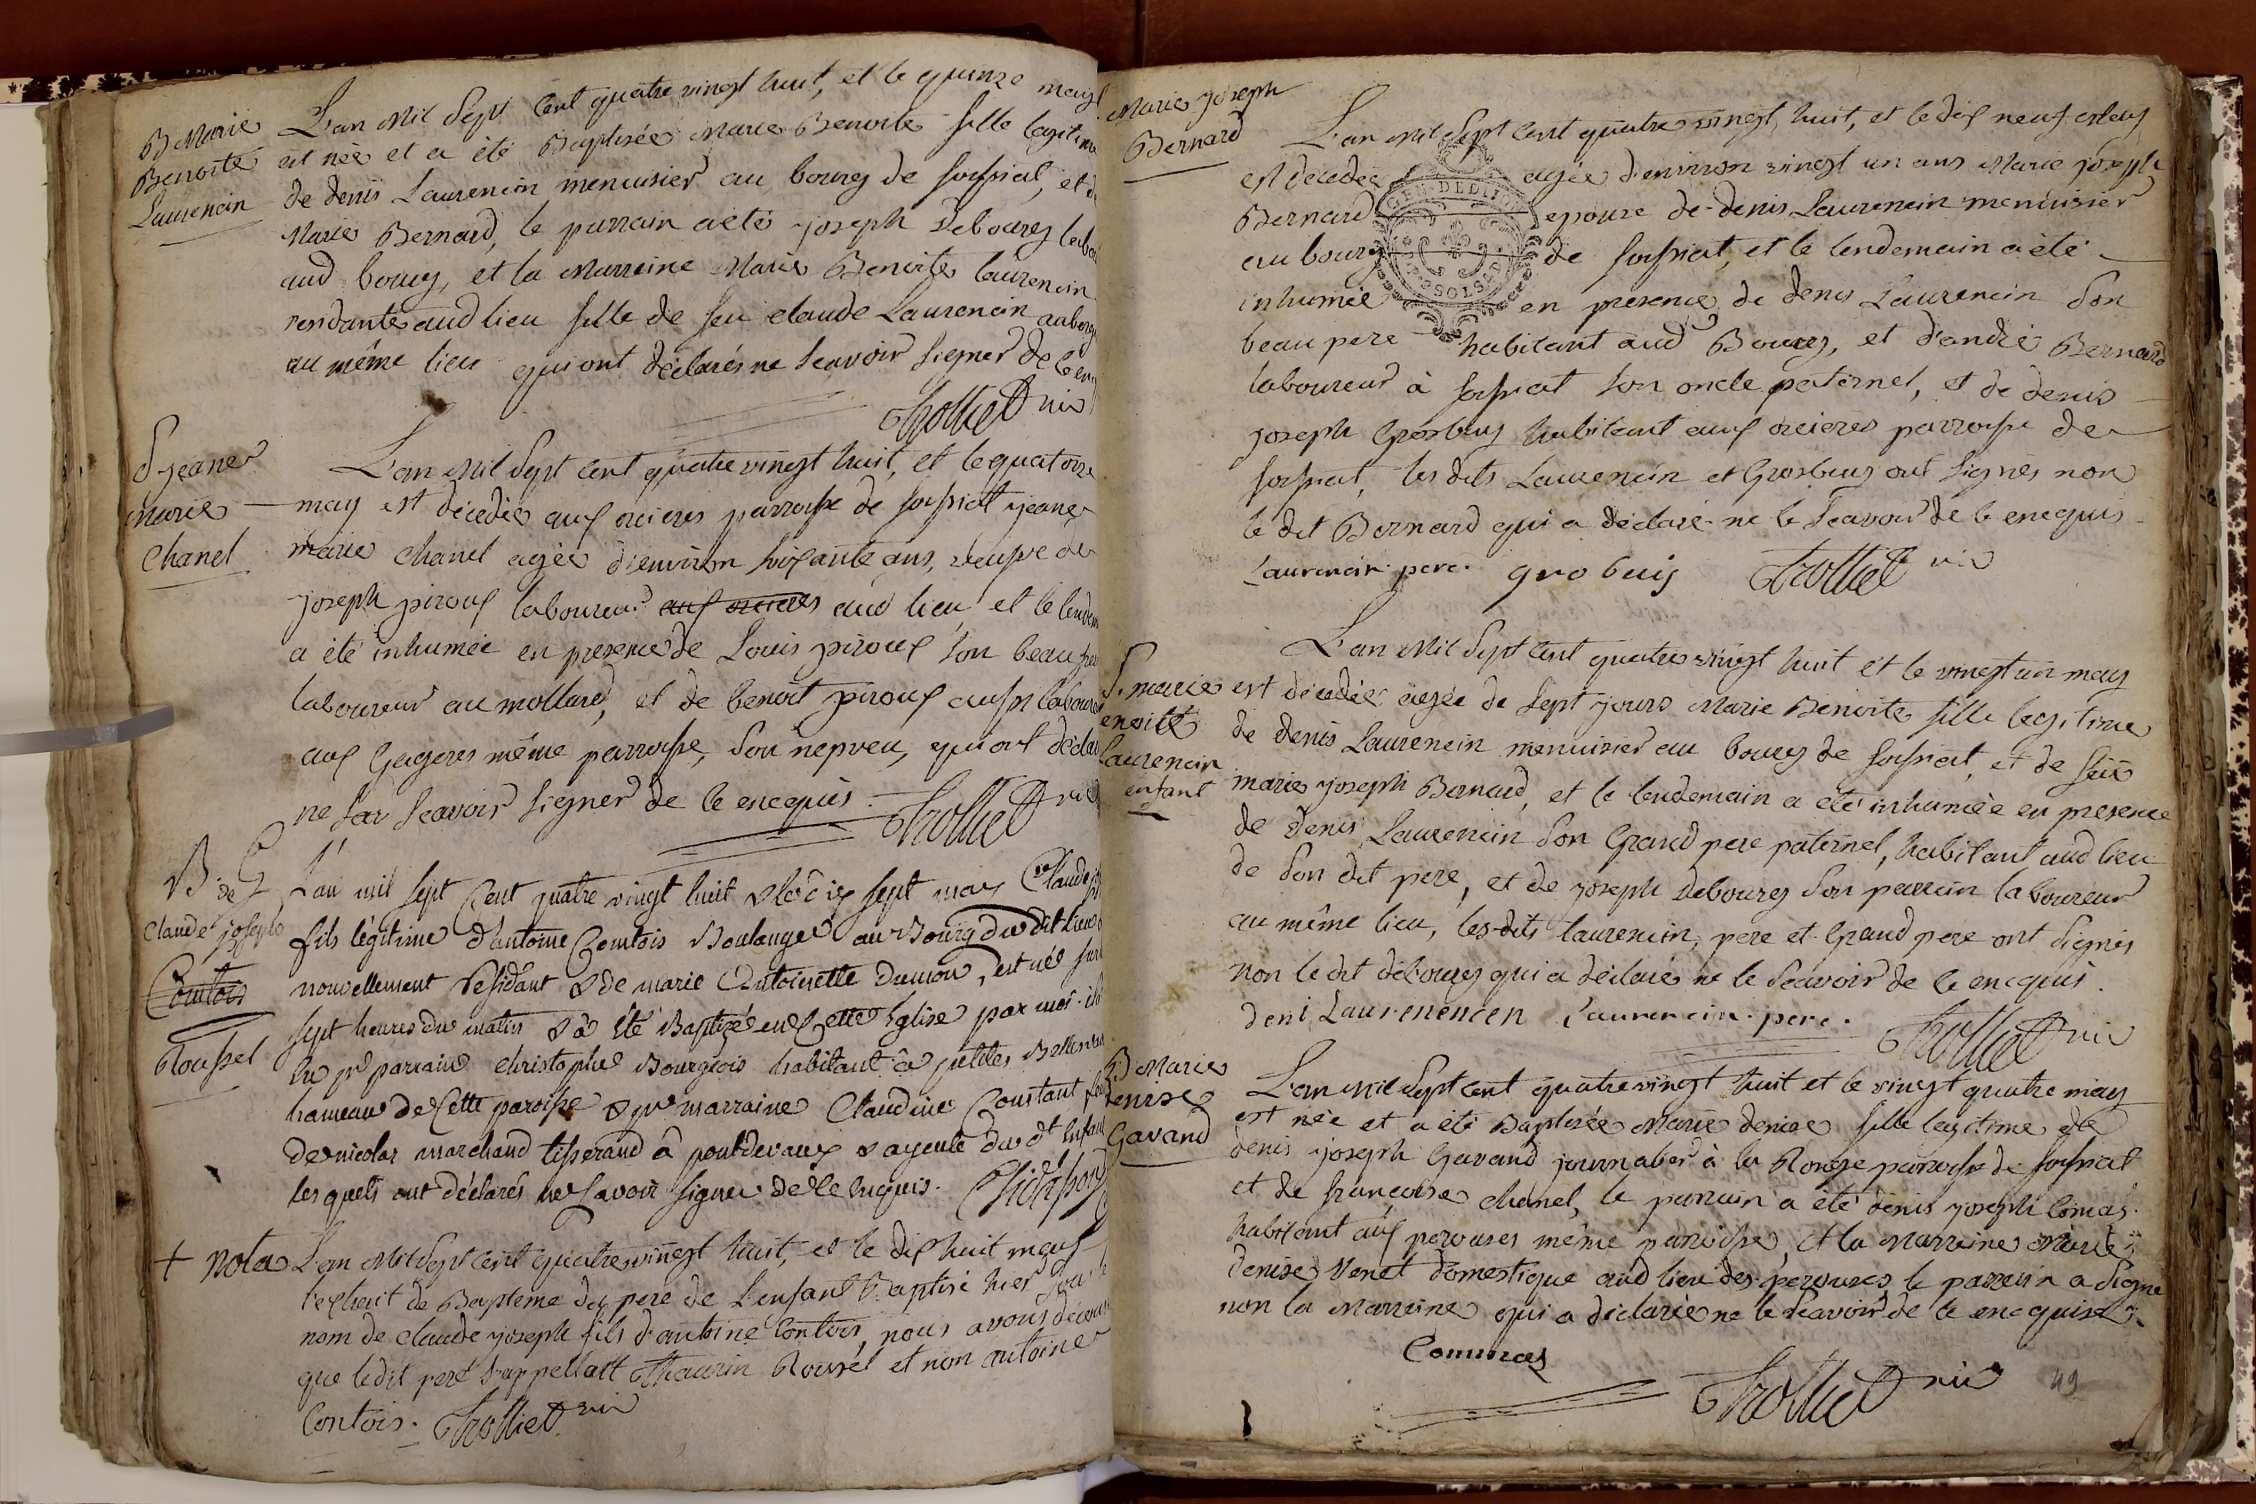 B Marie
Benoite
Laurencin
L'an Mil Sept Cent quatre vingt huit, et le quinze may
est née et a été Baptisée Marie Benoite fille legitime
de denis Laurencin menuisier au bourg de sousiat, et de
Marie Bernard, le parrain a été joseph Debourg labou
aud bourg, et la Marreine Marie Benoite laurencin
residante aud lieu fille de feu claude Laurencin auberg
au même lieu qui ont déclarés ne scavoir signer de ce enq
Trolliet vic
S jeane
marie
Chanel
L'an Mil Sept Cent quatre vingt huit, et le quatorze
may est décedée aux orcieres parroisse de sousiat jeane
marie Chanel agée d'environ soixante ans, veufve de
joseph piroux laboureur aux orcieres aud lieu et le lendem
a été inhumée en presence de Louis piroux son beau frere
laboureur au mollard, et de benoit piroux aussi laboureur
aux Gageres même parroisse, son nepveu, qui ont déclar
ne sav scavoir signer de ce encquis.
Trolliet vic
B. de
Claude joseph
Comtois
Roussel
L'an mil sept Cent quatre vingt huit & le dix sept may Claude jo
fils légitime d'antoine Comtois Boulanger au Bourg du dit lieu
nouvellement Residant & de marie Antoinette dumon, est né sur
sept heures du matin & a été Baptizé en Cette Eglise par moi. il
eu pr parrain christophe Bourgeois habitant à petites
hameau de Cette paroisse & pr marraine Claudine Constant
de nicolas marchand tisserand à pontdevaux & ayeule du dt Enfant
les quels ont déclarés ne savoir signer de ce Enquis.
+ nota L'an Mil Sept Cent quatre vingt huit, et le dix huit may
l'extrait de Baptême du pere de L'enfant Baptisé hier sou
nom de claude joseph fils d'antoine Contois, nous avons découv
que ledit pere s'appellait Thaurin Roussel et non antoine
Contois. Trolliet vic
Marie Joseph
Bernard
L'an Mil Sept Cent quatre vingt huit, et le dix neuf may
est décedée agée d'environ vingt un ans Marie joseph
Bernard epouse de denis Laurencin menuisier
au bourg de sousiat, et le lendemain a été
inhumée en presence de denis Laurencin Son
beau pere habitant aud Bourg, et d'andré Bernard
laboureur à sousiat son oncle paternel, et de denis
joseph Grosbuy habitant aux orcieres parroisse de
sousiat, les dits Laurencin et Grosbuy ont signés non
le dit Bernard qui a déclaré ne le Scavoir de ce encquis
Laurencin pere. gro buis Trolliet vic
S. marie
enoite
Laurencin
enfant
L'an Mil Sept Cent quatre vingt huit et le vingt un may
est décedée agée de Sept jours Marie Benoite fille legitime
de denis Laurencin menuisier au bourg de sousiat, et de feüe
marie joseph Bernard, et le lendemain a été inhumée en presence
de Denis Laurencin Son Grand pere paternel, habitant aud lieu
de Son dit pere, et de joseph debourg Son parrain laboureur
au même lieu, les dits laurencin, pere et Grand pere ont signés
non le dit debourg qui a déclaré ne le Scavoir de ce encquis.
deni Laurenencen Laurencin pere. Trolliet vic
B Marie
Denise
Gavand
L'an Mil Sept Cent quatre vingt huit et le vingt quatre may
est née et a été Baptisée Marie denise fille legitime de
denis joseph Gavand journalier à la Ronze parroisse de sousiat
et de françoise chanel, le parrain a été denis joseph Comas
habitant aux perouses même parroisse, et la Marreine Marie
Denise Venet domestique aud lieu des perouses, le parrain a Signé
non la Marreine qui a déclarée ne le Scavoir de ce encquise.
Commas
Trolliet vic
49